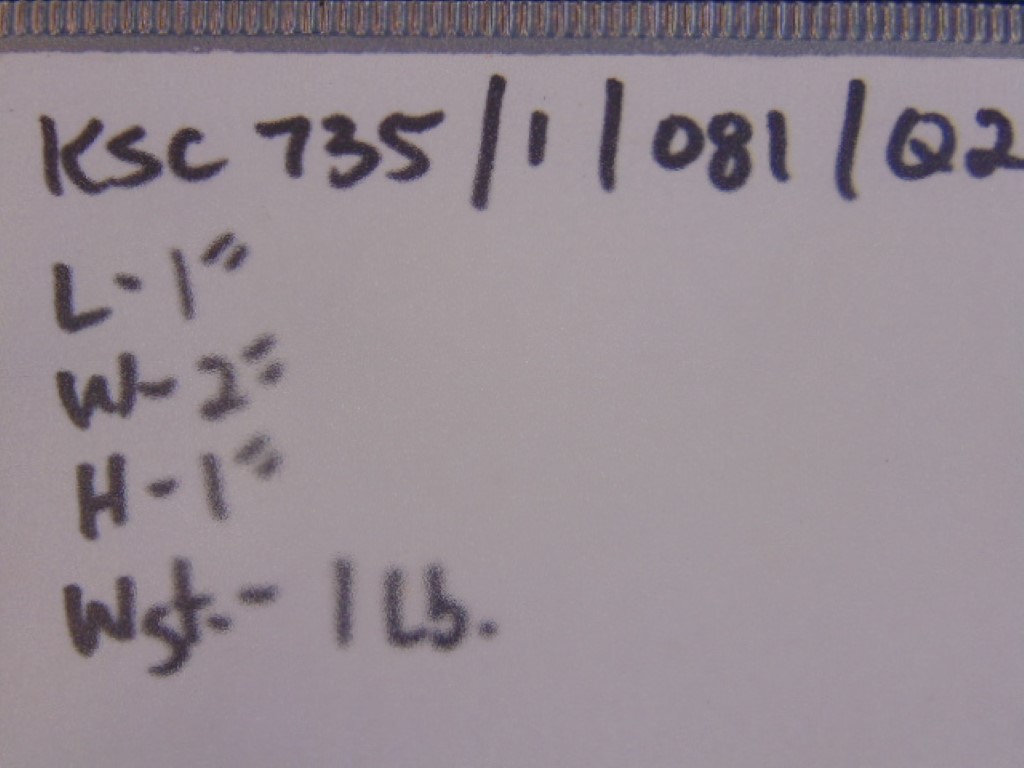 KSC 735/1/081/Q2
L-1"
W-2"
H-1"
Wgt.- 1 Lb.